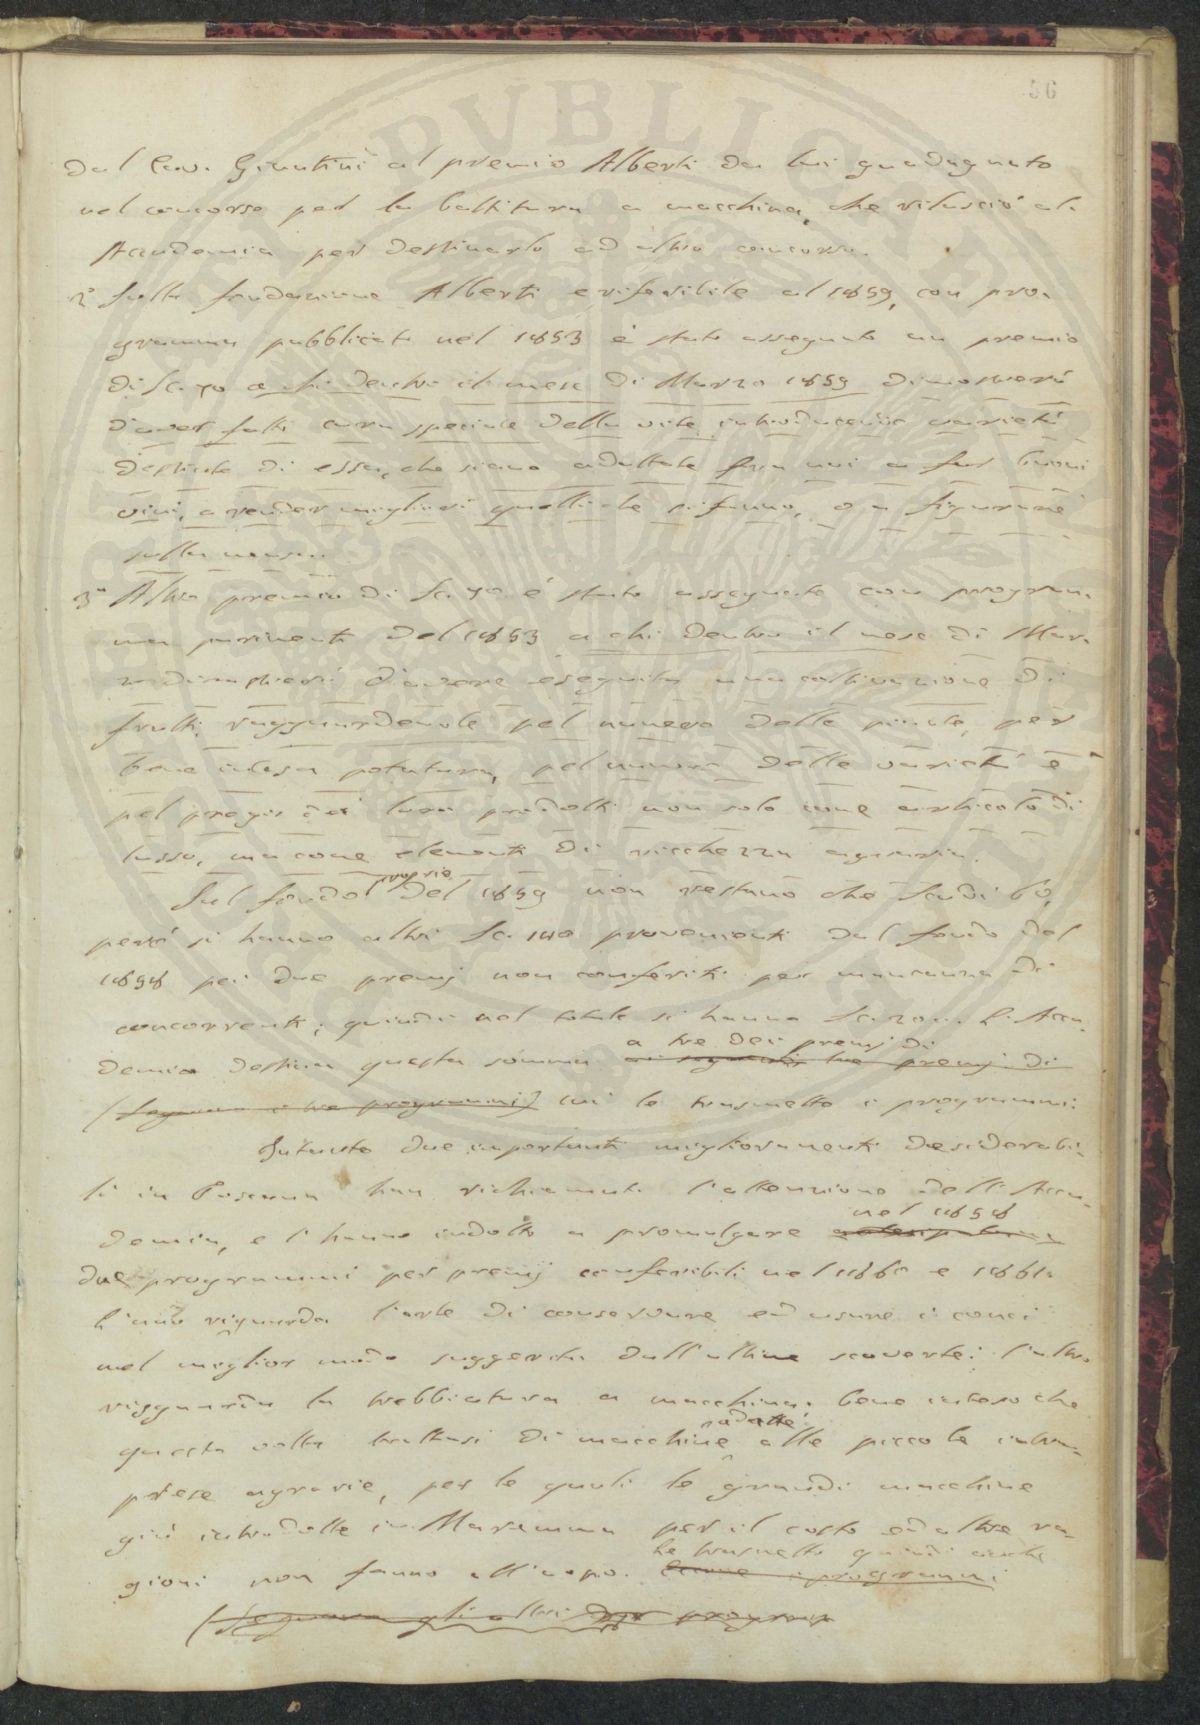 56
dal Cav. Giuntini al premio Alberti da lui guadagnato
nel concorso per la battitura a macchina, che rilasciò al-
Accademia per destinarlo ad altro concorso.
2° Sulla fondazione Alberti e riferibile al 1859, con pro-
gramma pubblicato nel 1853 è stato assegnato un premio
di Sc. 70 a chi dentro il mese di Marzo 1859 dimostrerà
d'aver fatti cura speciale della vite, introducendo varietà
distinte di essa, che siano adattate fra noi a far buoni
vini, a render migliori quelli che si fanno, o a figurare
sulla mensa.
3° Altro premio di Sc. 70 è stato assegnato con program-
ma parimenti del 1853 a chi dentro il mese di Mar-
zo dimostrerà d'avere eseguita una coltivazione di
frutti, ragguardevole pel numero delle piante, per
bene intesa potatura, pel numero delle varietà e
pel pregio dei loro prodotti non solo come articolo di
lusso, ma come elementi di ricchezza agraria.
Sul fondo proprio del 1859 non restano che Scudi 60,
perchè si hanno altri Sc. 140 provenienti dal fondo del
1858 pei due premj non conferiti per mancanza di
concorrenti; quindi nel totale si hanno Sc. 200. L'Acca-
a tre dei premj di
demia destina questa somma ai seguenti tre premj di
(Seguono i tre programmi) cui le trasmetto i programmi.
Intanto due importanti miglioramenti desiderabi-
li in Toscana han richiamato l'attenzione dell'Acca-
nel 1858
demia, e l'hanno indotto a promulgare
due programmi per premj conferibili nel 1860 e 1861.
L'uno riguarda l'arte di conservare ed usare i conci
nel miglior modo suggerito dall'ultime scoverte; l'altro
risguarda la trebbiatura a macchina. bene inteso che
adatte
questa volta trattasi di macchine alle piccole intra-
prese agrarie, per le quali le grandi macchine
già introdotte in Maremma per il costo ed altre ra-
Le trasmetto quindi anche
gioni non fanno all'uopo. i programmi
(Seguono gli altri due programmi